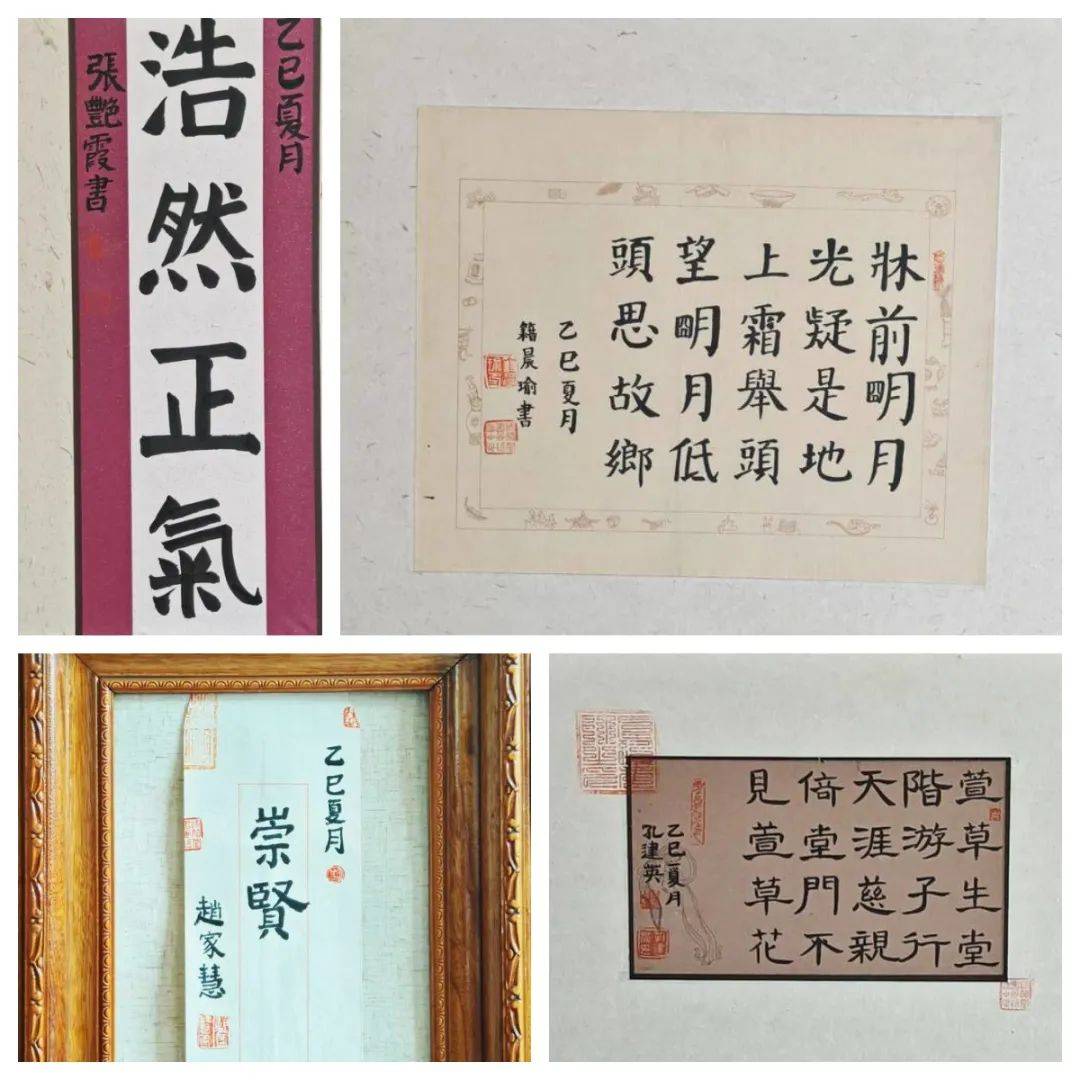 乙巳夏月
浩然正氣
張艷霞書
牀前明月
光疑是地
上霜舉頭
望明月低
頭思故鄉
乙巳夏月
籍晨瑜書
乙巳夏月
崇賢
趙家慧
萱草生堂
階游子行
天涯慈親
倚堂門不
見萱草花
乙巳夏月
孔建英